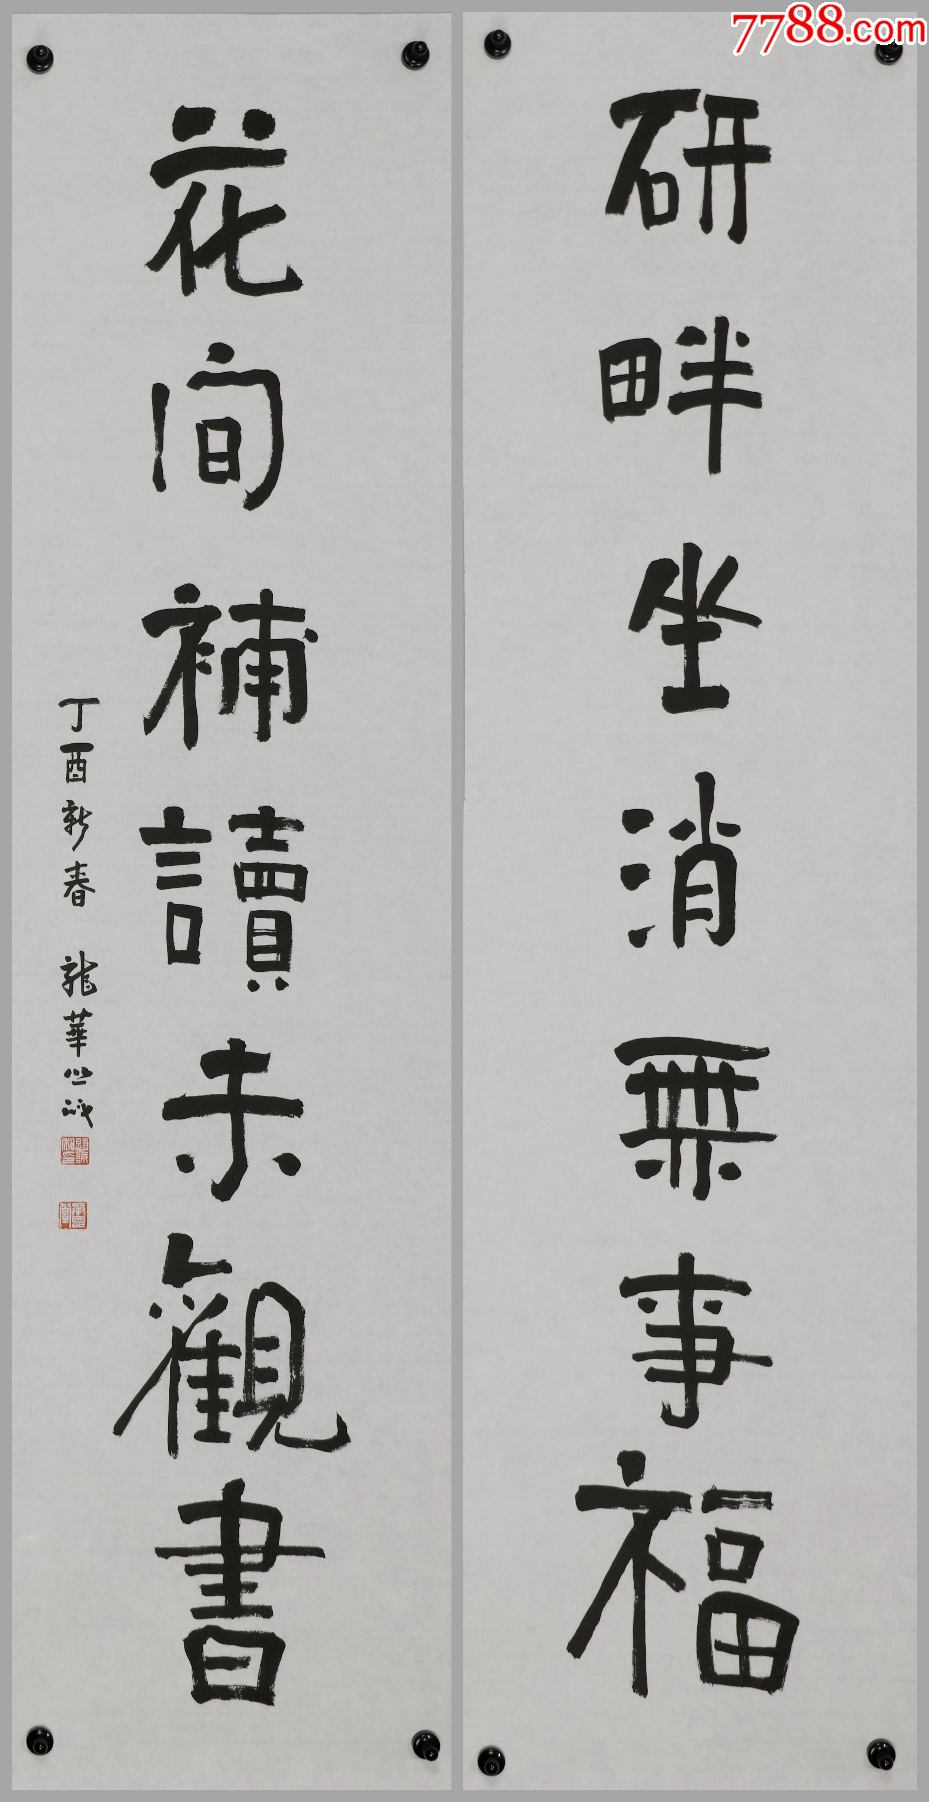 7788.com
研畔坐消無事福
花间補讀未觀書
丁酉新春 龍華